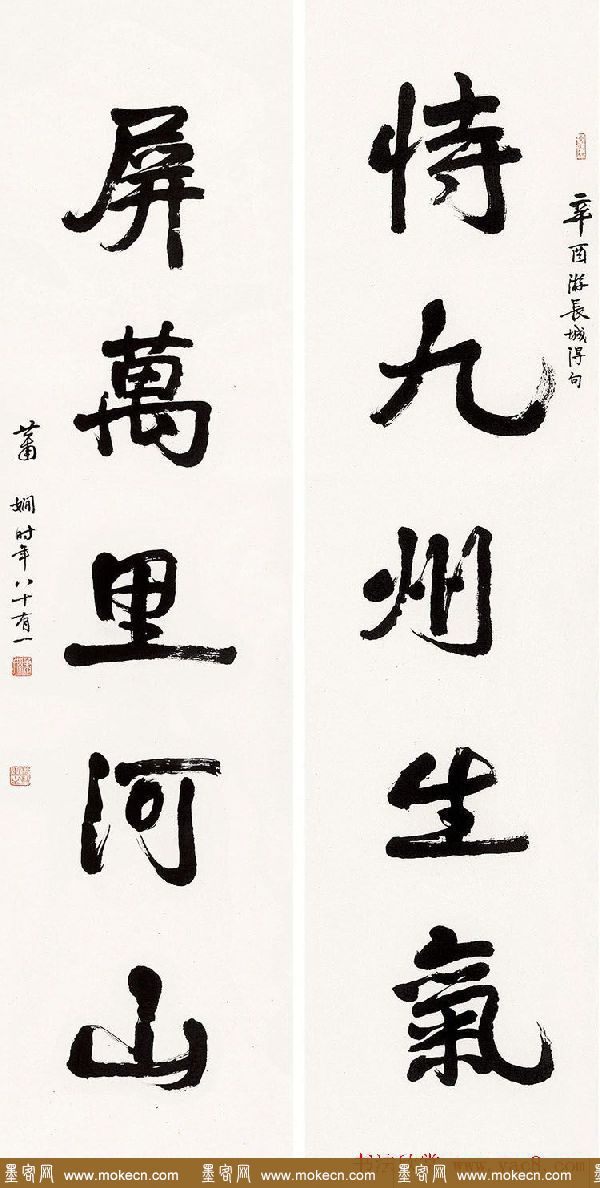 辛酉游長城得句
恃九州生氣
屏萬里河山
蕭嫻时年八十有一
墨客网 www.mokecn.com 墨客网 www.mokecn.com 墨客网 www.mokecn.com